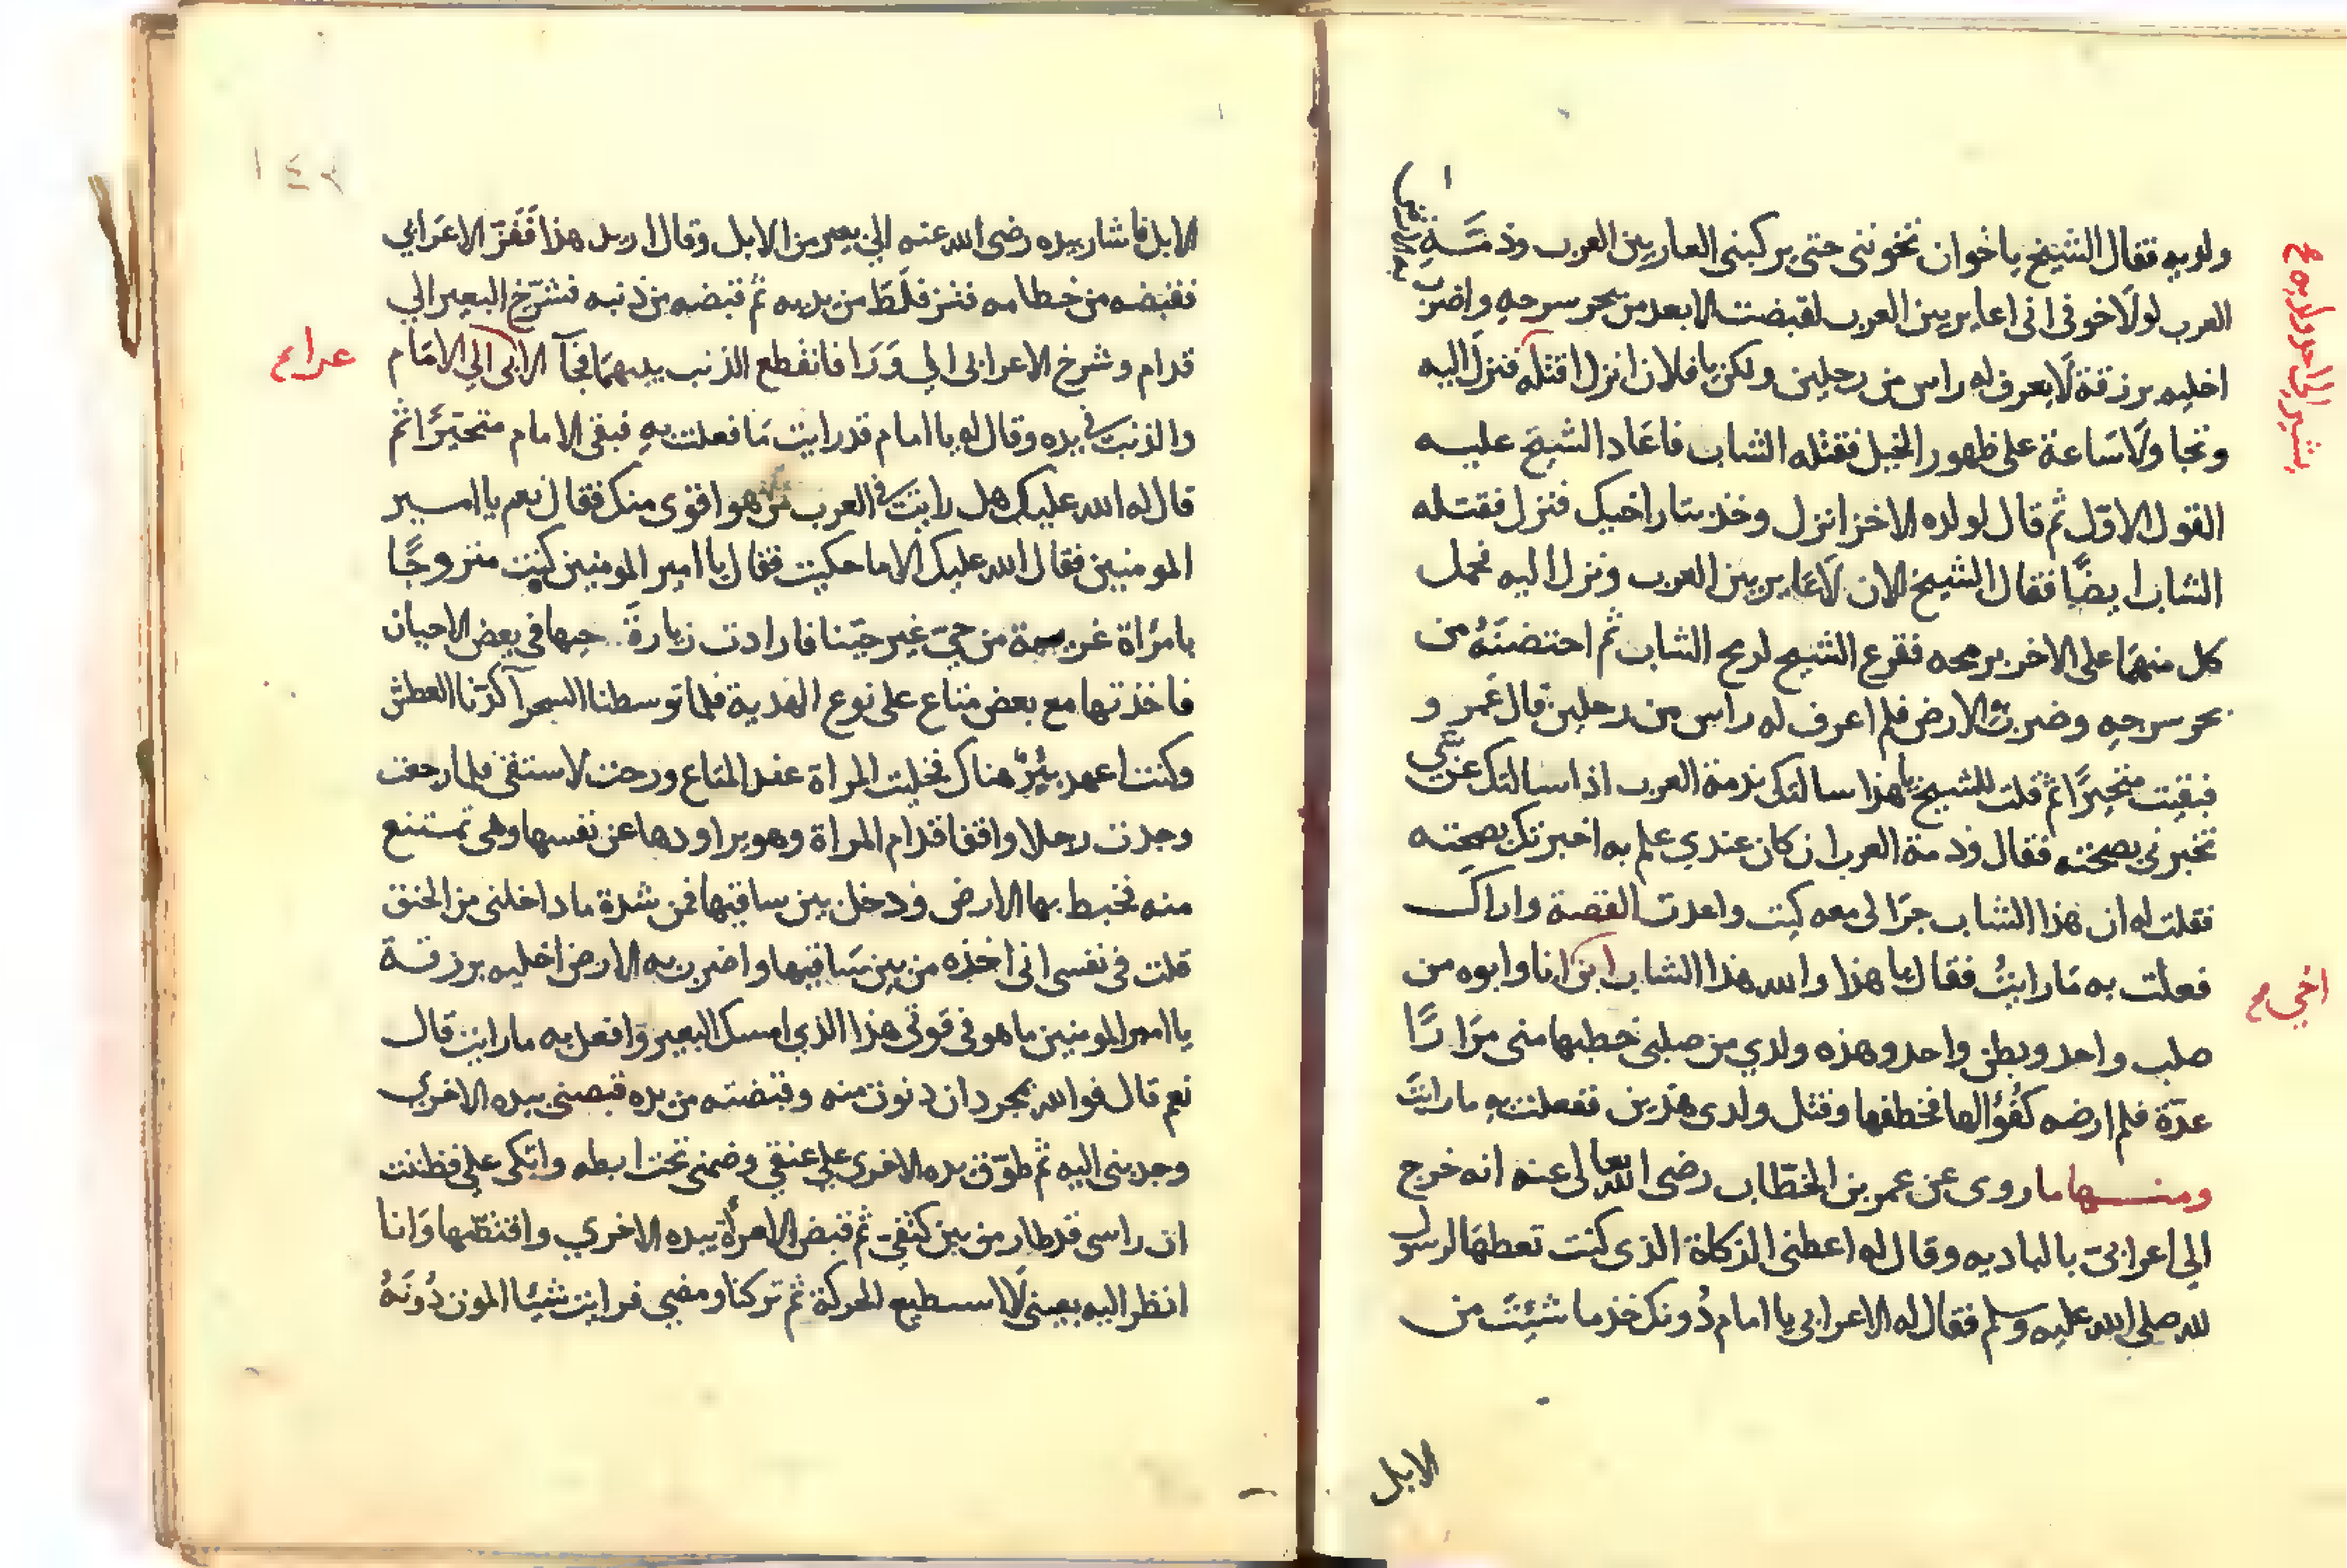 ولديه فقال الشيخ ياخوان تخونني حتى يركبني العار بين العرب وذمة
العرب لولا خوفي اني اعاير بين العرب لقبضت الابعد من بحر سرجه واضرب
اخليه برزقة لا يعرف له راس من رجلين ولكن يا فلان انزل اقتله فنزل اليه
وتجاولا ساعة على ظهور الخيل فقتله الشاب فاعاد الشيخ عليه
القول الاول ثم قال لولده الاخر انزل وخذ بتار اخيك فنزل فقتله
الشاب ايضًا فقال الشيخ الان لاعاير بين العرب ونزل اليه فحمل
كل منهما على الاخر برمحه فقرع الشيخ لرمح الشاب ثم احتضنه من
بحر سرجه وضرب به الارض فلم اعرف له راس من رجلين قال عمرو
فبقيت متحيرًا ثم قلت للشيخ يا هذا سالتك بذمة العرب اذا سالتك عن شي
تخبرني بصحته فقال وذمة العرب ان كان عندي علم به اخبرتك بصحته
فقلت له ان هذا الشاب جرا لي معه كيت واعدت القصة واراك
فعلت به ما رايتُ فقال يا هذا والله هذا الشاب ابن انا وابوه من
صلب واحد وبطن واحد وهذه ولدي من صلبي خطبها مني مرارًا
عدّة فلم ارضه كفؤا لها فخطفها وقتل ولدي هذين ففعلت به ما رايت
ومنها ما روى عن عمر بن الخطّاب رضى الله تعالى عنه انه خرج
الي اعرابيّ بالباديه وقال له اعطني الزكاة الذي كنت تعطها لرسول
لله صلي الله عليه وسلم فقال له الاعرابي يا امام دُونك خذ ما شئت من
اخي صح
الابل
١٤٢
الابل فاشار بيده رضى الله عنه الي بعير من الابل وقال اريد هذا فَفَزّ الاعرابي
فقبضه من خطامه فنتر فلَطّ من يديه ثم قبضه من ذنبه فشرّخ البعير الي
قدام وشرخ الاعرابي الي وَرَا فانقطع الذنب بيديهما فجآ الابي الي الامام
والذنب في يده وقال له يا امام قد رايت مَا فعلت به فبقى الامام متحيّرًا ثم
قال له الله عليك هل رايت في العرب من هو اقوى منك فقال نعم يا امير
المومنين فقال الله عليك الا ما حكيت فقال يا امير المومنين كنت متزوجًا
بامرأة غريبة من حيّ غير حيّنا فارادت زيارة حيها في بعض الاحيان
فاخذتها مع بعض متاع على نوع الهدية فلما توسطنا السحر آكدّنا العطش
وكنت اعهد بئرٌ هناك فخليت المراة عند المتاع ورحت لاستقى فلما رجعت
وجدت رجلا واقفا قدام المراة وهو يراودها عن نفسها وهى تمتنع
منه فخبط بها الارض ودخل بين ساقيها فمن شدة ما داخلنى من الخنق
قلت في نفسى انى اخذه من بين ساقيها واضرب به الارض اخليه برزقة
يا امير المومنين ما هو في قوتي هذا الذي امسك البعير وافعل به ما رايت قال
نعم قال فوالله بمجرد ان دنوت منه وقبضته من يده قبضني بيده الاخري
وجدبنى اليه ثم طوّق يده الاخرى علي عنقي وضمني تحت ابطه واتكى علي فظننت
ان راسى قد طار من بين كتفي ثم قبض الامرأة بيده الاخري وافتضّها وَانا
انظر اليه بعيني لا استطيع الحركة ثم تركنا ومضي فرايت شيئا الموت دُونَهُ
عرا صح